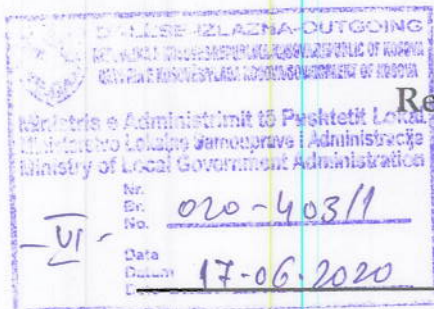 DALËSE-IZLAZNA-OUTGOING
REPUBLIC OF KOSOVA
GOVERNMENT OF KOSOVA
Re
Ministria e Administrimit të Pushtetit Lokal
Ministarstvo Lokalne Samouprave i Administracije
Ministry of Local Government Administration
Nr.
Br.
No. 020-403/1
-VI-
Data
Datum
17-06-2020